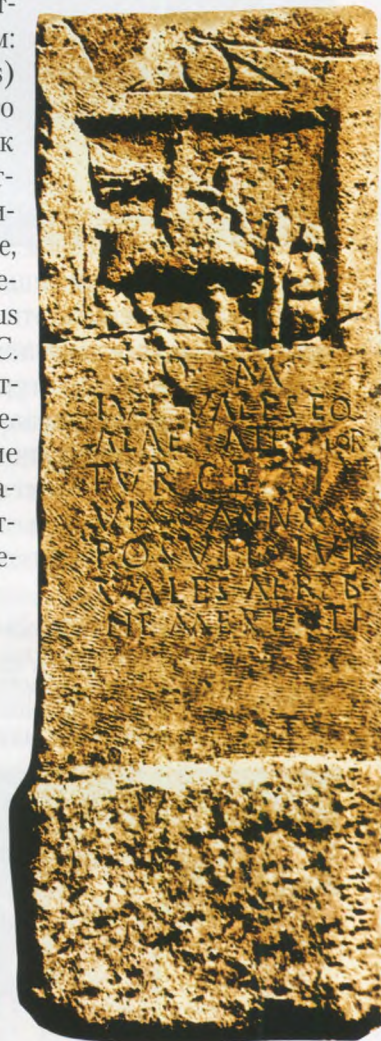 т-
м:
s)
о
к
т-
и-
е,
е-
us
C.
т-
е-
ие
а-
т-
е-
D M
IVL VALES EQ
ALAE
TVR CE
VIX ANN
POSVIT IVL
VALES
NE MERENTI